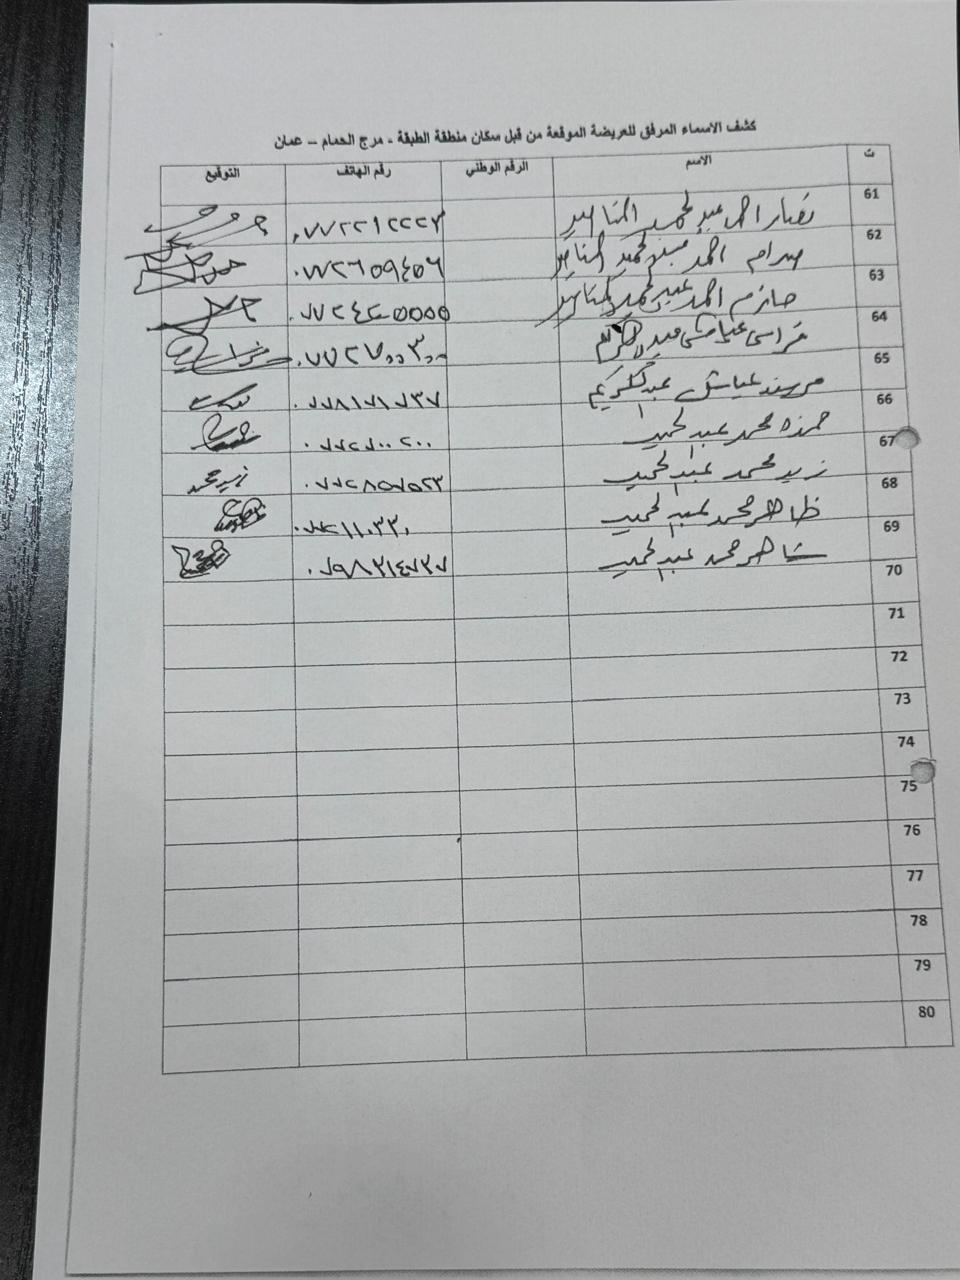 كشف الاسماء المرفق للعريضة الموقعة من قبل سكان منطقة الطبقة - مرج الحمام – عمان
ت الاسم الرقم الوطني رقم الهاتف التوقيع
61 نصار احمد عبدالحميد المناصير ٠٧٧٢٢١٢٢٢٣
62 صدام احمد المناصير ٠٧٧٢٦٥٩٤٥٦
63 حازم احمد عبدالحميد المناصير ٠٧٧٢٤٢٥٥٥٥
64 فراس عبدالكريم ٠٧٧٢٧٠٠٣٠٠
65 مهند عياش عبدالكريم ٠٧٧٨١٧١٧٣٧
66 حمزه محمد عبدالحميد ٠٧٧٢٧٠٠٢٠٠
67 زيد محمد عبدالحميد زيد محمد
68 ظاهر محمد عبدالحميد ٠٧٧٢١١٠٣٣٠
69 شاهر محمد عبدالحميد
70
71
72
73
74
75
76
77
78
79
80